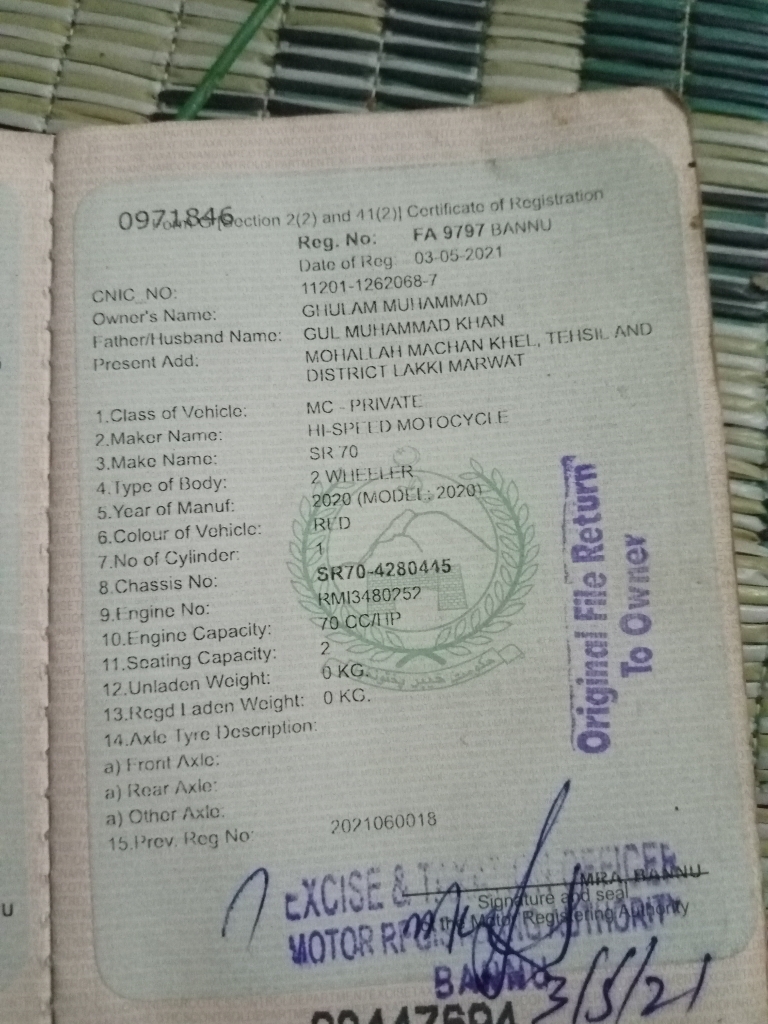 0971846
Form G [Section 2(2) and 41(2)] Certificate of Registration
Reg. No: FA 9797 BANNU
Date of Reg 03-05-2021
CNIC_NO: 11201-1262068-7
Owner's Name: GHULAM MUHAMMAD
Father/Husband Name: GUL MUHAMMAD KHAN
Present Add: MOHALLAH MACHAN KHEL, TEHSIL AND
DISTRICT LAKKI MARWAT
1.Class of Vehicle: MC - PRIVATE
2.Maker Name: HI-SPEED MOTOCYCLE
3.Make Name: SR 70
4.Type of Body: 2 WHEELER
5.Year of Manuf: 2020 (MODEL: 2020)
6.Colour of Vehicle: RED
7.No of Cylinder: 1
8.Chassis No: SR70-4280445
9.Engine No: RMI3480252
10.Engine Capacity: 70 CC/HP
11.Seating Capacity: 2
12.Unladen Weight: 0 KG.
13.Regd Laden Weight: 0 KG.
14.Axle Tyre Description:
a) Front Axle:
a) Rear Axle:
a) Other Axle:
15.Prev. Reg No: 2021060018
Original File Return
To Owner
MRA, BANNU
Signature and seal
of the Motor Registering Authority
EXCISE & TAXATION OFFICER
MOTOR REGISTRING AUTHORITY
BANNU
3/5/21